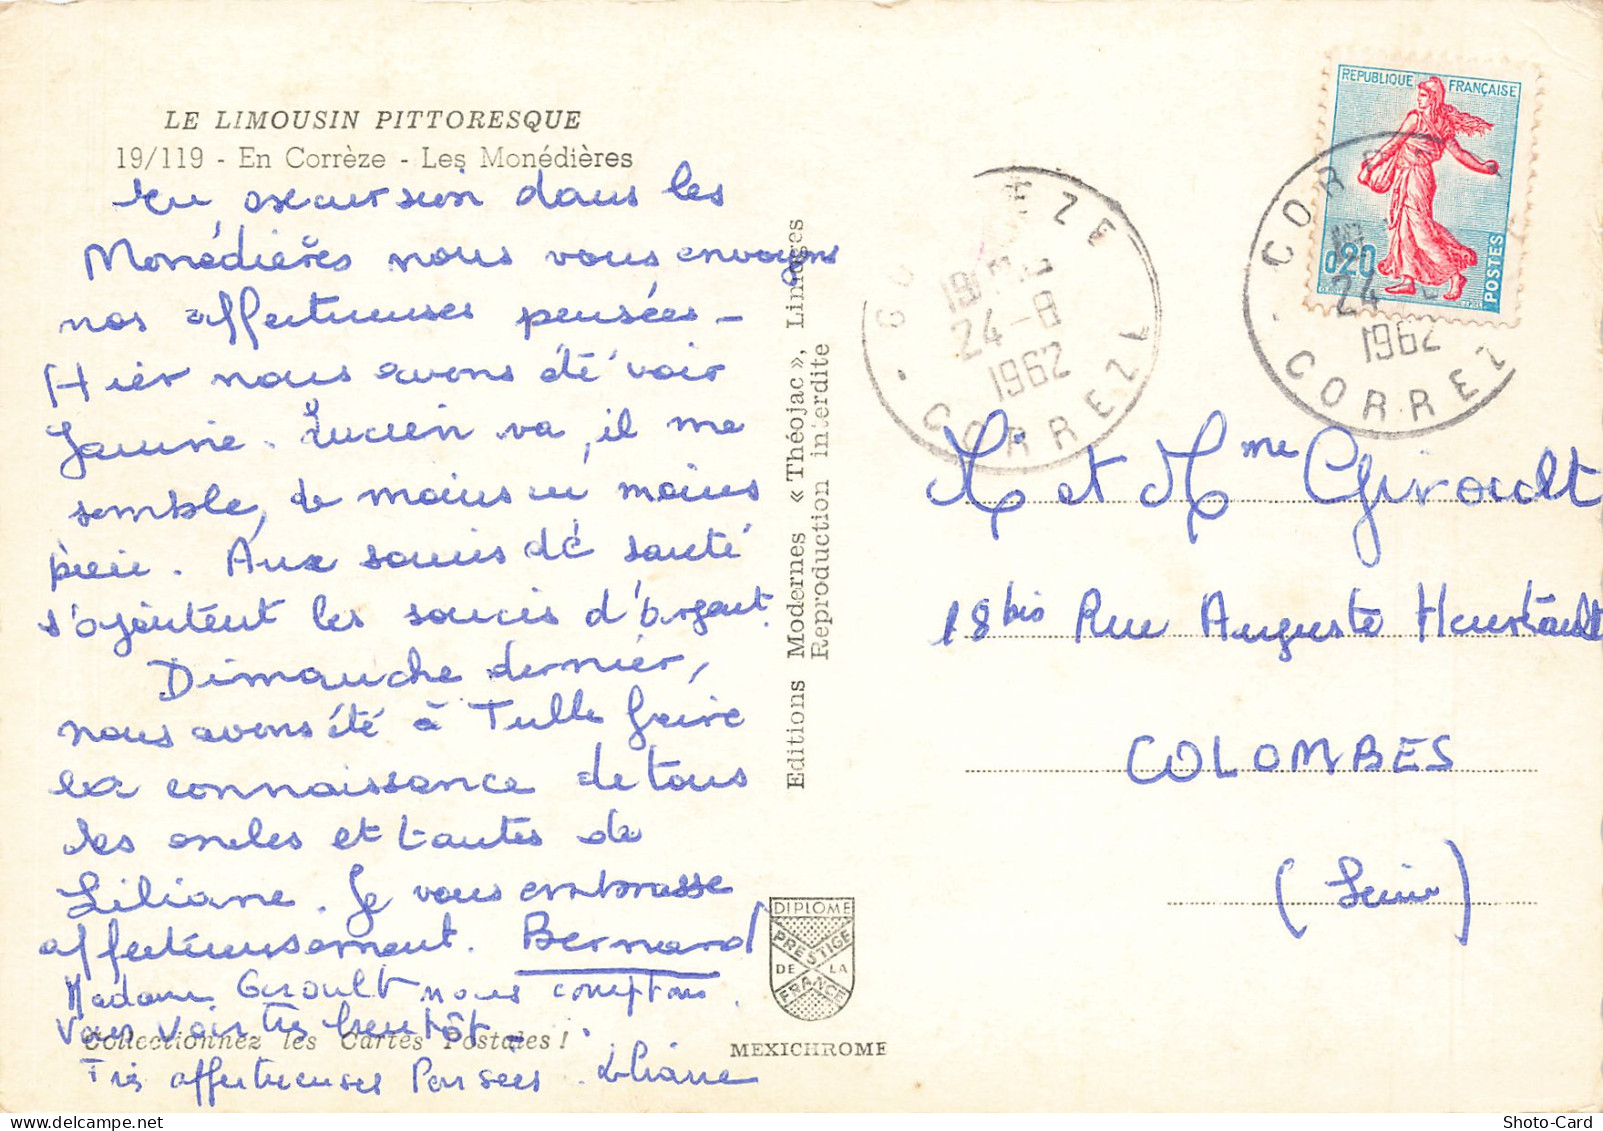 LE LIMOUSIN PITTORESQUE
19/119 - En Corrèze - Les Monédières
En excursion dans les
Monédières nous vous envoyons
nos affectueuses pensées -
Hier nous avons été voir
Jeanine. Lucien va, il me
semble, de moins en moins
bien. Aux soucis de santé
s'ajoutent les soucis d'argent.
Dimanche dernier,
nous avons été à Tulle faire
la connaissance de tous
les oncles et tantes de
Liliane. Je vous embrasse
affectueusement. Bernard
Madame Giroult nous comptons
vous voir très bientôt.
Collectionnez les Cartes Postales !
Très affectueuses Pensées. Liliane
Editions Modernes « Théojac », Limoges
Reproduction interdite
DIPLOME
PRESTIGE
DE LA
FRANCE
MEXICHROME
REPUBLIQUE FRANÇAISE
0,20
POSTES
CORREZE
19H
24-8
1962
CORREZE
CORR
19H
24
1962
CORREZ
M. et Mme Giroult
18 bis Rue Auguste
COLOMBES
(Seine)
Shoto-Card